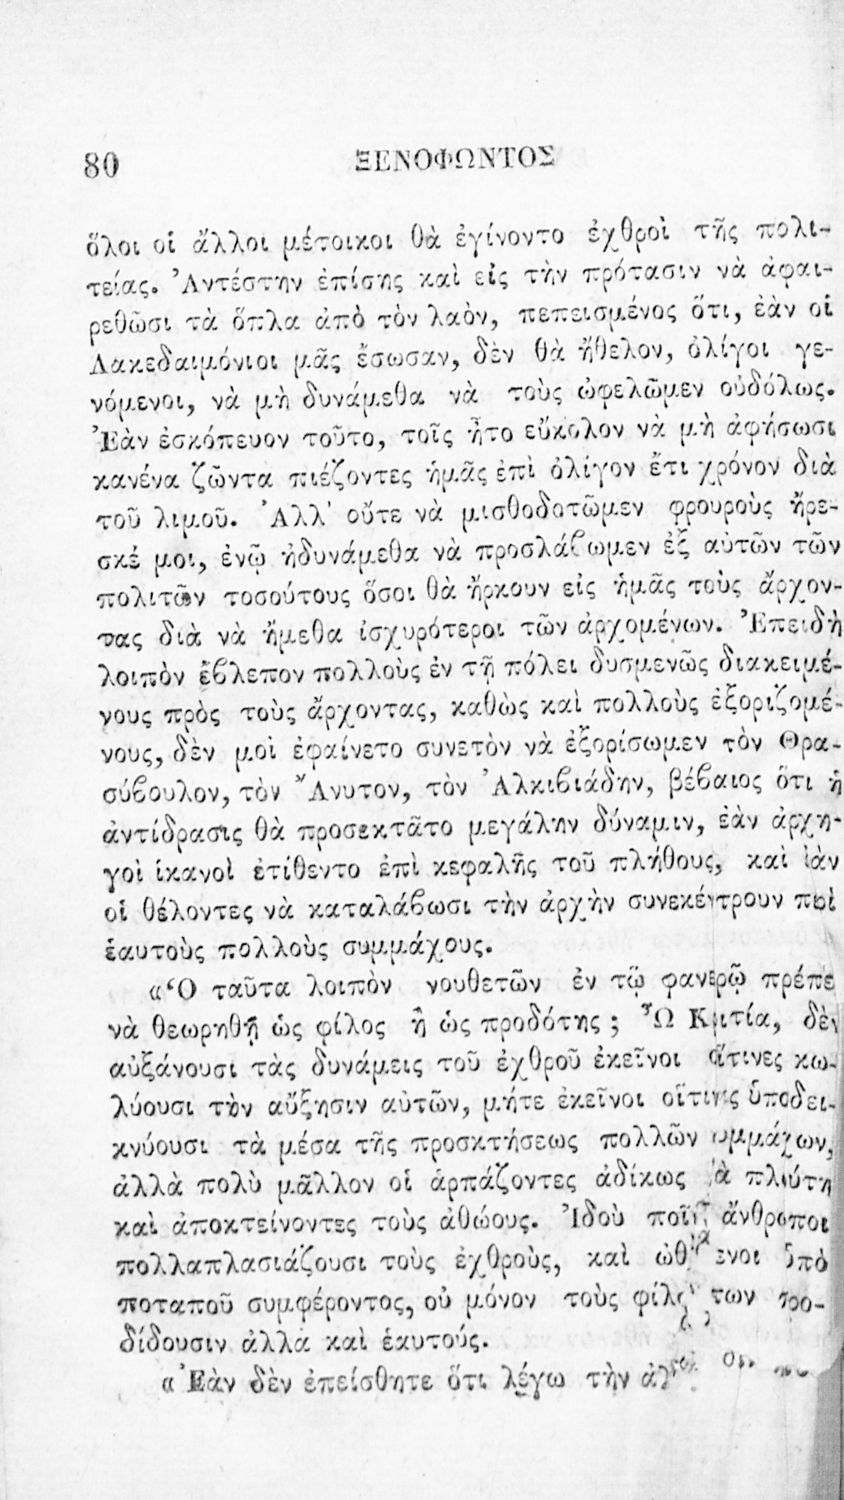 80 ΞΕΝΟΦΩΝΤΟΣ
ὅλοι οἱ ἄλλοι μέτοικοι θὰ ἐγίνοντο ἐχθροὶ τῆς πολι-
τείας. Ἀντέστην ἐπίσης καὶ εἰς τὴν πρότασιν νὰ ἀφαι-
ρεθῶσι τὰ ὅπλα ἀπὸ τὸν λαὸν, πεπεισμένος ὅτι, ἐὰν οἱ
Λακεδαιμόνιοι μᾶς ἔσωσαν, δὲν θὰ ἤθελον, ὀλίγοι γε-
νόμενοι, νὰ μὴ δυνάμεθα νὰ τοὺς ὠφελῶμεν οὐδόλως.
Ἐὰν ἐσκόπευον τοῦτο, τοῖς ἦτο εὔκολον νὰ μὴ ἀφήσωσι
κανένα ζῶντα πιέζοντες ἡμᾶς ἐπὶ ὀλίγον ἔτι χρόνον διὰ
τοῦ λιμοῦ. Ἀλλ' οὔτε νὰ μισθοδοτῶμεν φρουροὺς ἤρε-
σκέ μοι, ἐνῷ ἠδυνάμεθα νὰ προσλάϐωμεν ἐξ αὐτῶν τῶν
πολιτῶν τοσούτους ὅσοι θὰ ἤρκουν εἰς ἡμᾶς τοὺς ἄρχον-
τας διὰ νὰ ἤμεθα ἰσχυρότεροι τῶν ἀρχομένων. Ἐπειδὴ
λοιπὸν ἔϐλεπον πολλοὺς ἐν τῇ πόλει δυσμενῶς διακειμέ-
νους πρὸς τοὺς ἄρχοντας, καθὼς καὶ πολλοὺς ἐξοριζομέ-
νους, δὲν μοὶ ἐφαίνετο συνετὸν νὰ ἐξορίσωμεν τὸν Θρα-
σύϐουλον, τὸν Ἄνυτον, τὸν Ἀλκιϐιάδην, βέϐαιος ὅτι ἡ
ἀντίδρασις θὰ προσεκτᾶτο μεγάλην δύναμιν, ἐὰν ἀρχη-
γοὶ ἱκανοὶ ἐτίθεντο ἐπὶ κεφαλῆς τοῦ πλήθους, καὶ ἐὰν
οἱ θέλοντες νὰ καταλάϐωσι τὴν ἀρχὴν συνεκέντρουν περὶ
ἑαυτοὺς πολλοὺς συμμάχους.
«Ὁ ταῦτα λοιπὸν νουθετῶν ἐν τῷ φανερῷ πρέπει
νὰ θεωρηθῇ ὡς φίλος ἢ ὡς προδότης; Ὦ Κριτία, δὲν
αὐξάνουσι τὰς δυνάμεις τοῦ ἐχθροῦ ἐκεῖνοι οἵτινες κω-
λύουσι τὴν αὔξησιν αὐτῶν, μήτε ἐκεῖνοι οἵτινες ὑποδει-
κνύουσι τὰ μέσα τῆς προσκτήσεως πολλῶν συμμάχων,
ἀλλὰ πολὺ μᾶλλον οἱ ἁρπάζοντες ἀδίκως τὰ πλούτη
καὶ ἀποκτείνοντες τοὺς ἀθώους. Ἰδοὺ ποῖοι ἄνθρωποι
πολλαπλασιάζουσι τοὺς ἐχθροὺς, καὶ ὑπὸ
ποταποῦ συμφέροντος, οὐ μόνον τοὺς φίλους των προ-
δίδουσιν ἀλλὰ καὶ ἑαυτούς.
«Ἐὰν δὲν ἐπείσθητε ὅτι λέγω τὴν